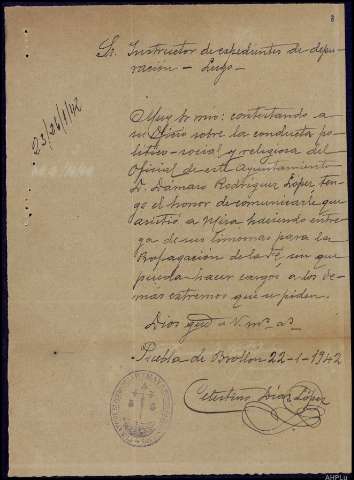 8
Sr. Instructor de expedientes de depu-
ración - Lugo -
23/26/1/42
Muy Sr. mio: contestando a
su Oficio sobre la conducta po-
lítico-social y religiosa del
Oficial de este Ayuntamiento
D. Dámaso Rodríguez López ten-
go el honor de comunicarle que
asistió a Misa haciendo entre-
ga de sus limosnas para la
Propagación de la Fé, sin que
pueda hacer cargos a los de-
más extremos que se piden.
Dios gue a V. ms. as.
Puebla de Brollon 22-1-1942
Celestino Díaz López
AHPLu